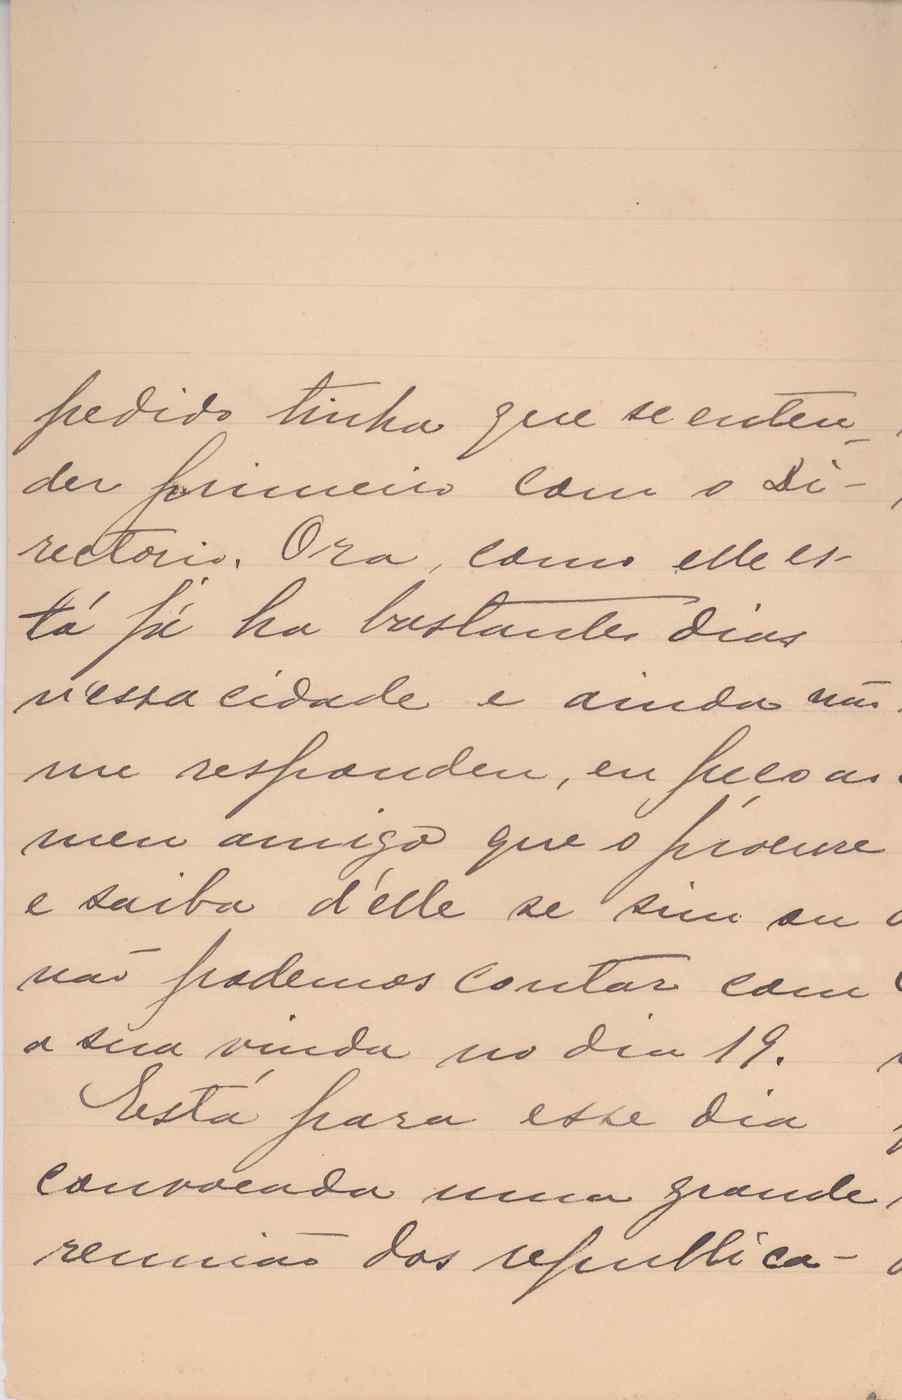 pedido tinha que se enten-
der primeiro com o Di-
rectorio. Ora, como elle es-
tá já ha bastantes dias
n'essa cidade e ainda não
me respondeu, eu peço ao
meu amigo que o procure
e saiba d'elle se sim ou
não podemos contar com
a sua vinda no dia 19.
Está para esse dia
convocada uma grande
reunião dos republica-